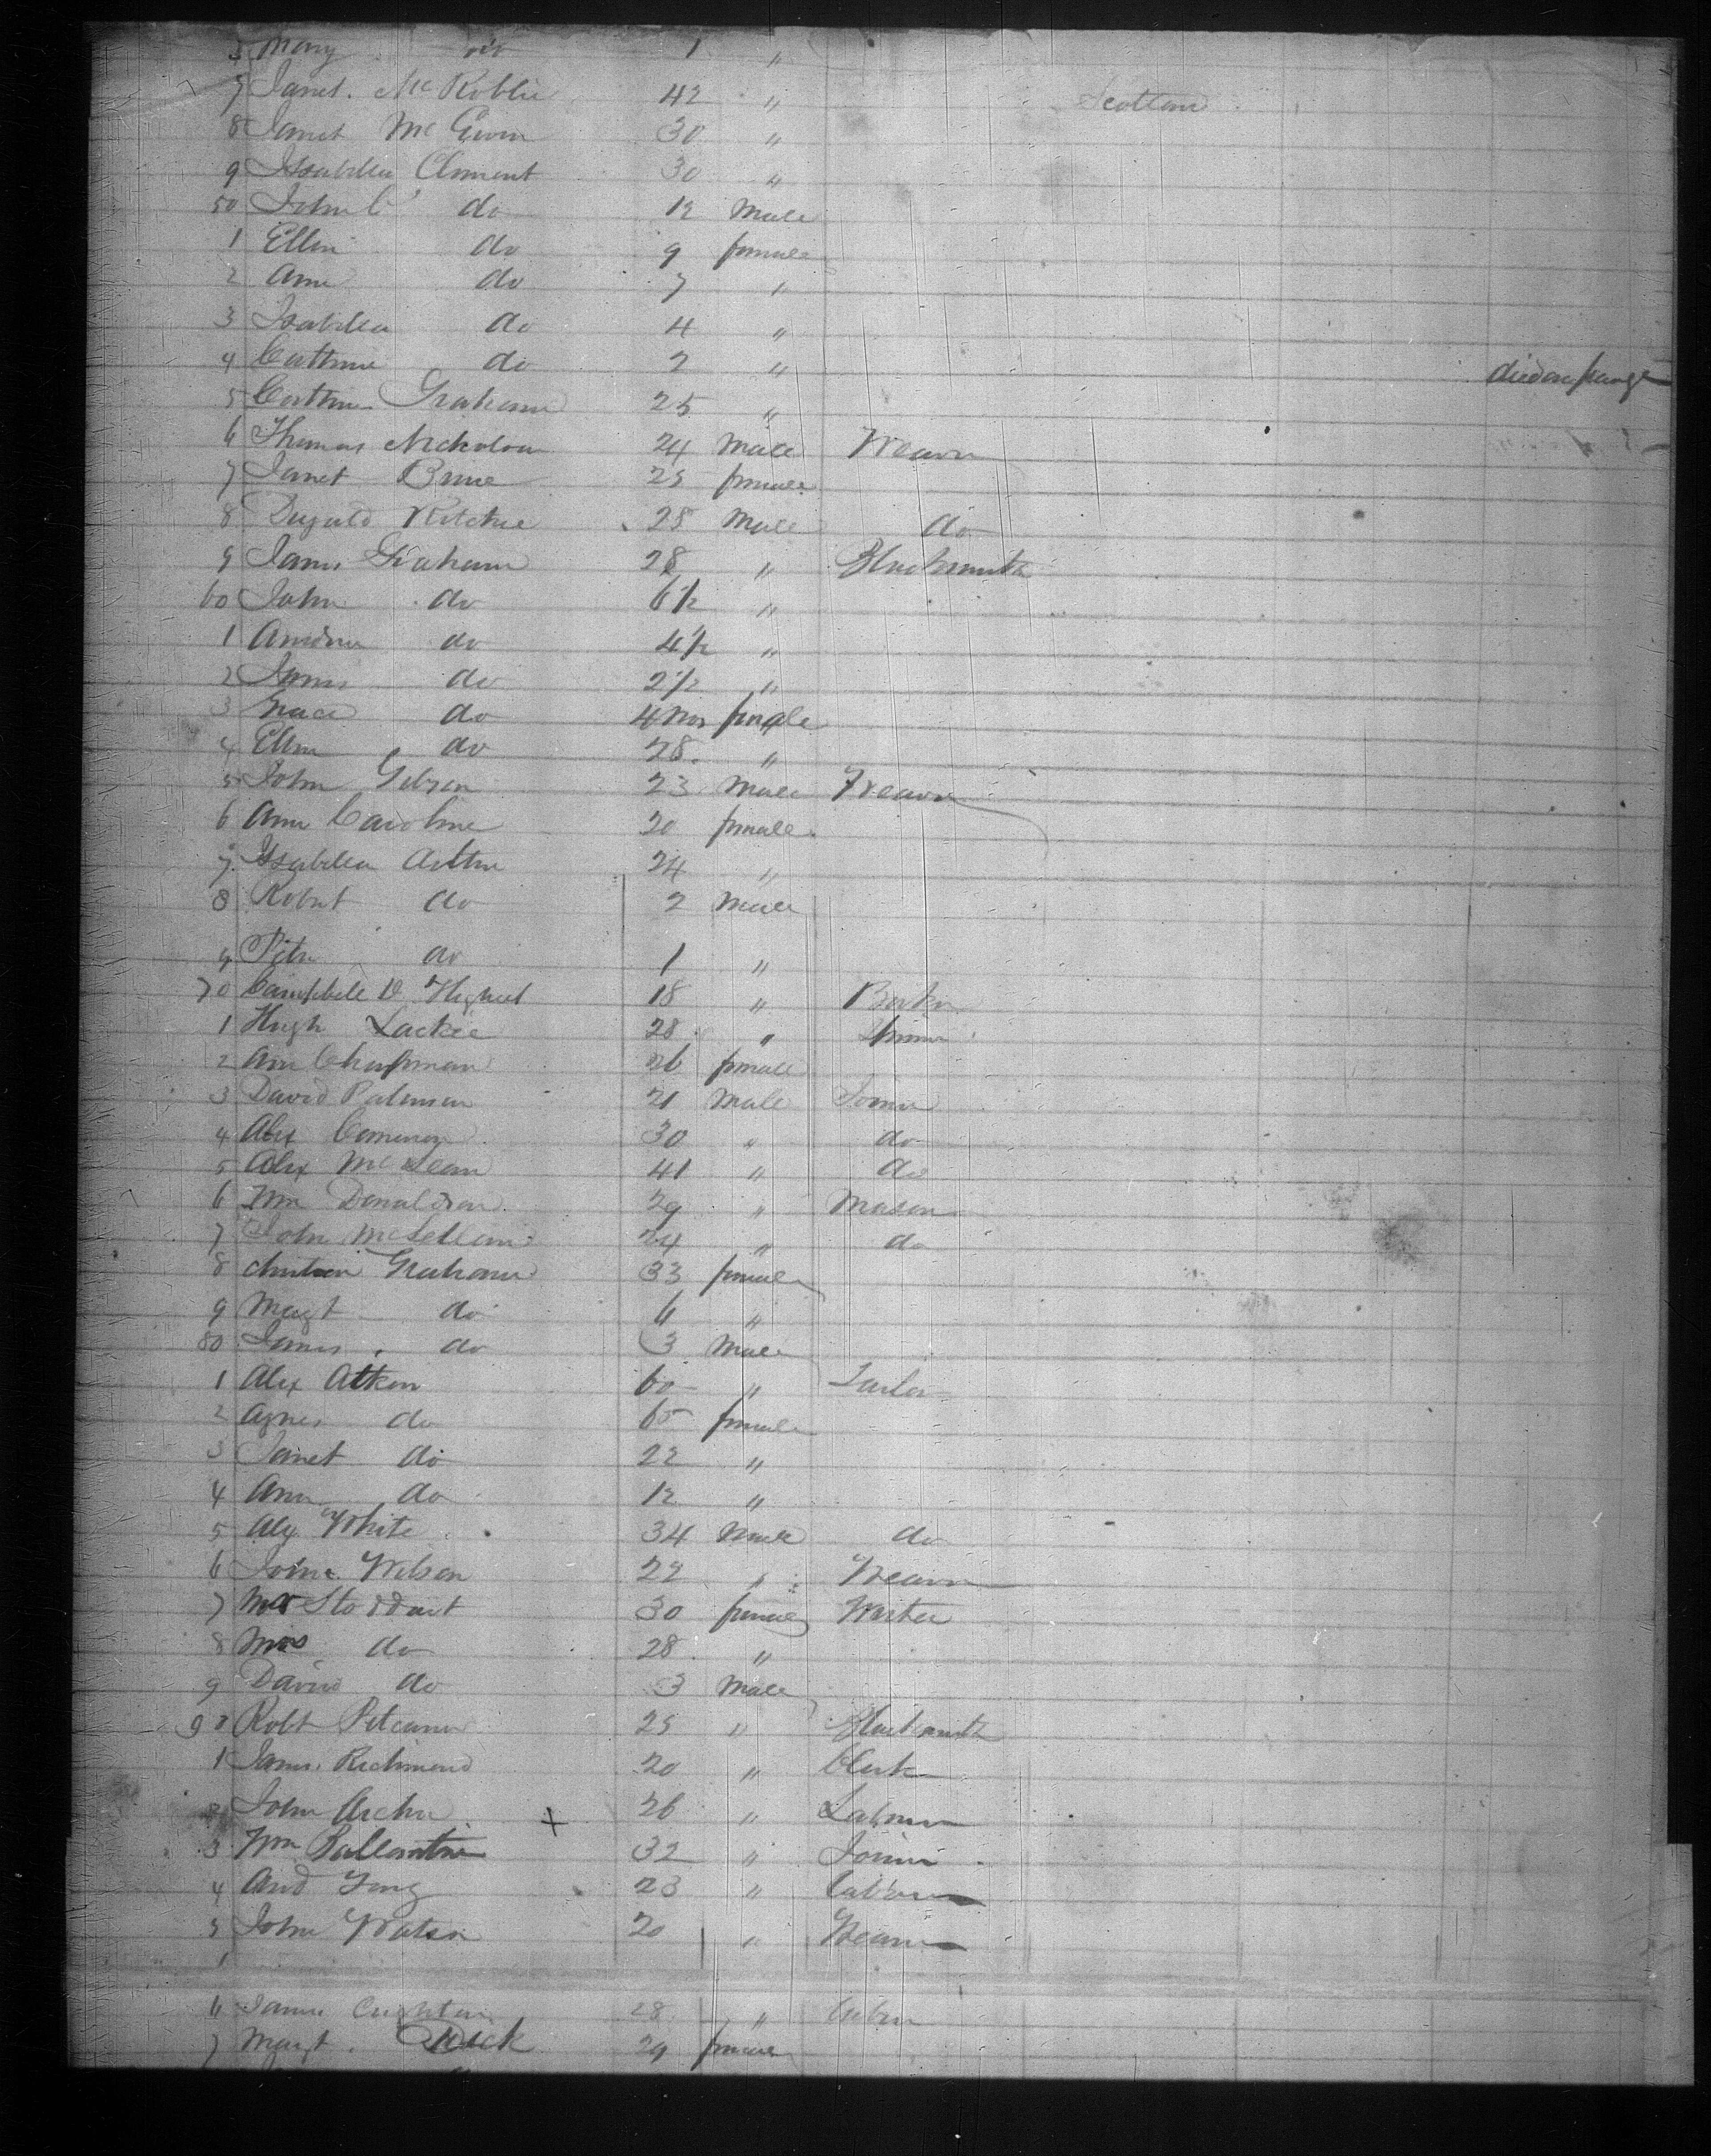 Mary do 1 "
7 Janet McRobbie 42 " Scotland
8 Janet McEwen 30 "
9 Isabella Clement 30 "
50 John C do 12 Male
1 Ellen do 9 female
2 Ann do 7 "
3 Isabella do 4 "
4 Cathrine do 2 " died on passage
5 Cathrine Graham 25 "
6 Thomas Nicholson 24 Male Weaver
7 Janet Bruce 25 female
8 Dugald Ritchie 25 Male do
9 James Graham 28 " Blacksmith
60 John do 6½ "
1 Andrew do 4½ "
2 James do 2½ "
3 Grace do 4 mos female
4 Ellen do 28 "
5 John Gibson 23 Male Weaver
6 Ann Caroline 20 female
7 Isabella Arthur 24 "
8 Robert do 2 Male
9 Peter do 1 "
70 Campbell D 18 " Baker
1 Hugh Lackie 28 "
2 Ann Chapman 26 female
3 David Paterson 21 Male Joiner
4 Alex 30 " do
5 Alex McLean 41 " do
6 Wm Donaldson 29 " Mason
7 John McLellan 24 " do
8 Graham 33 female
9 Magt do 6 "
80 James do 3 Male
1 Alex Aitken 60 " Tailor
2 Agnes do 65 female
3 Janet do 22 "
4 Ann do 12 "
5 Alex White 34 Male do
6 John Wilson 22 " Weaver
7 Mr Stoddart 30 female Writer
8 Mrs do 28 "
9 David do 3 Male
90 Robt Pitcairn 25 " Blacksmith
1 James Richmond 20 " Clerk
2 John Archer + 26 " Labourer
3 Wm Ballantine 32 " Joiner
4 And 23 " Labourer
5 John Watson 20 " Weaver
6 James 28 "
7 Margt Dick 29 female